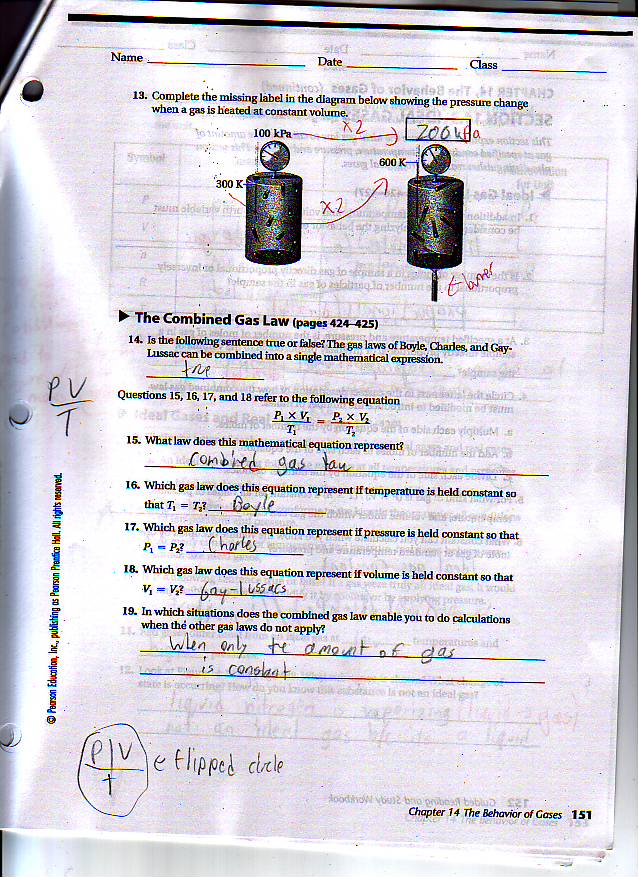 Name Date Class
13. Complete the missing label in the diagram below showing the pressure change
when a gas is heated at constant volume.
100 kPa x2 200 kPa
600 K
300 K x2
flame
▶ The Combined Gas Law (pages 424–425)
14. Is the following sentence true or false? The gas laws of Boyle, Charles, and Gay-
Lussac can be combined into a single mathematical expression.
true
PV
T
Questions 15, 16, 17, and 18 refer to the following equation
P₁ × V₁ = P₂ × V₂
T₁ T₂
15. What law does this mathematical equation represent?
Combined gas law
16. Which gas law does this equation represent if temperature is held constant so
that T₁ = T₂? Boyle
17. Which gas law does this equation represent if pressure is held constant so that
P₁ = P₂? Charles
18. Which gas law does this equation represent if volume is held constant so that
V₁ = V₂? Gay-lussacs
19. In which situations does the combined gas law enable you to do calculations
when the other gas laws do not apply?
When only te amount of gas
is constant
P|V
t
flipped circle
© Pearson Education, Inc., publishing as Pearson Prentice Hall. All rights reserved.
Chapter 14 The Behavior of Gases 151